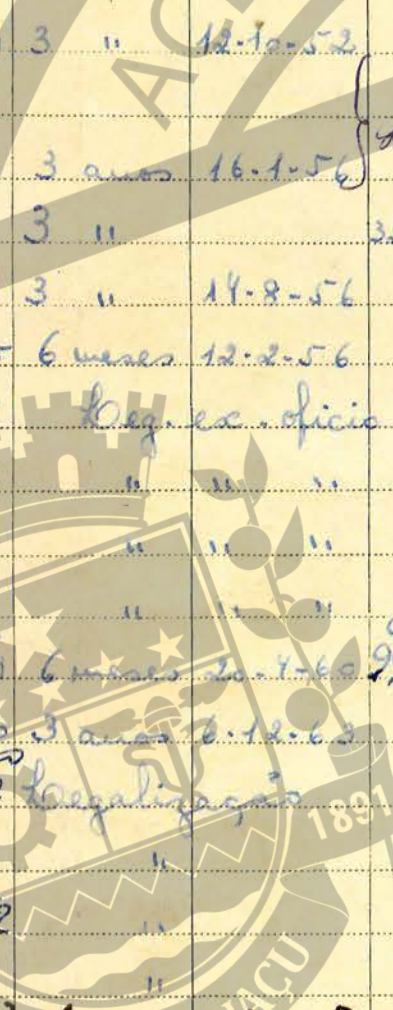 3 " 12-10-52
3 anos 16-1-56
3 "
3 " 14-8-56
6 meses 12-2-56
Leg. ex. oficio
" " "
" " "
" " "
6 meses 20-4-60
3 anos 6-12-63
Legalização
"
"
"
1891
AC
AÇU